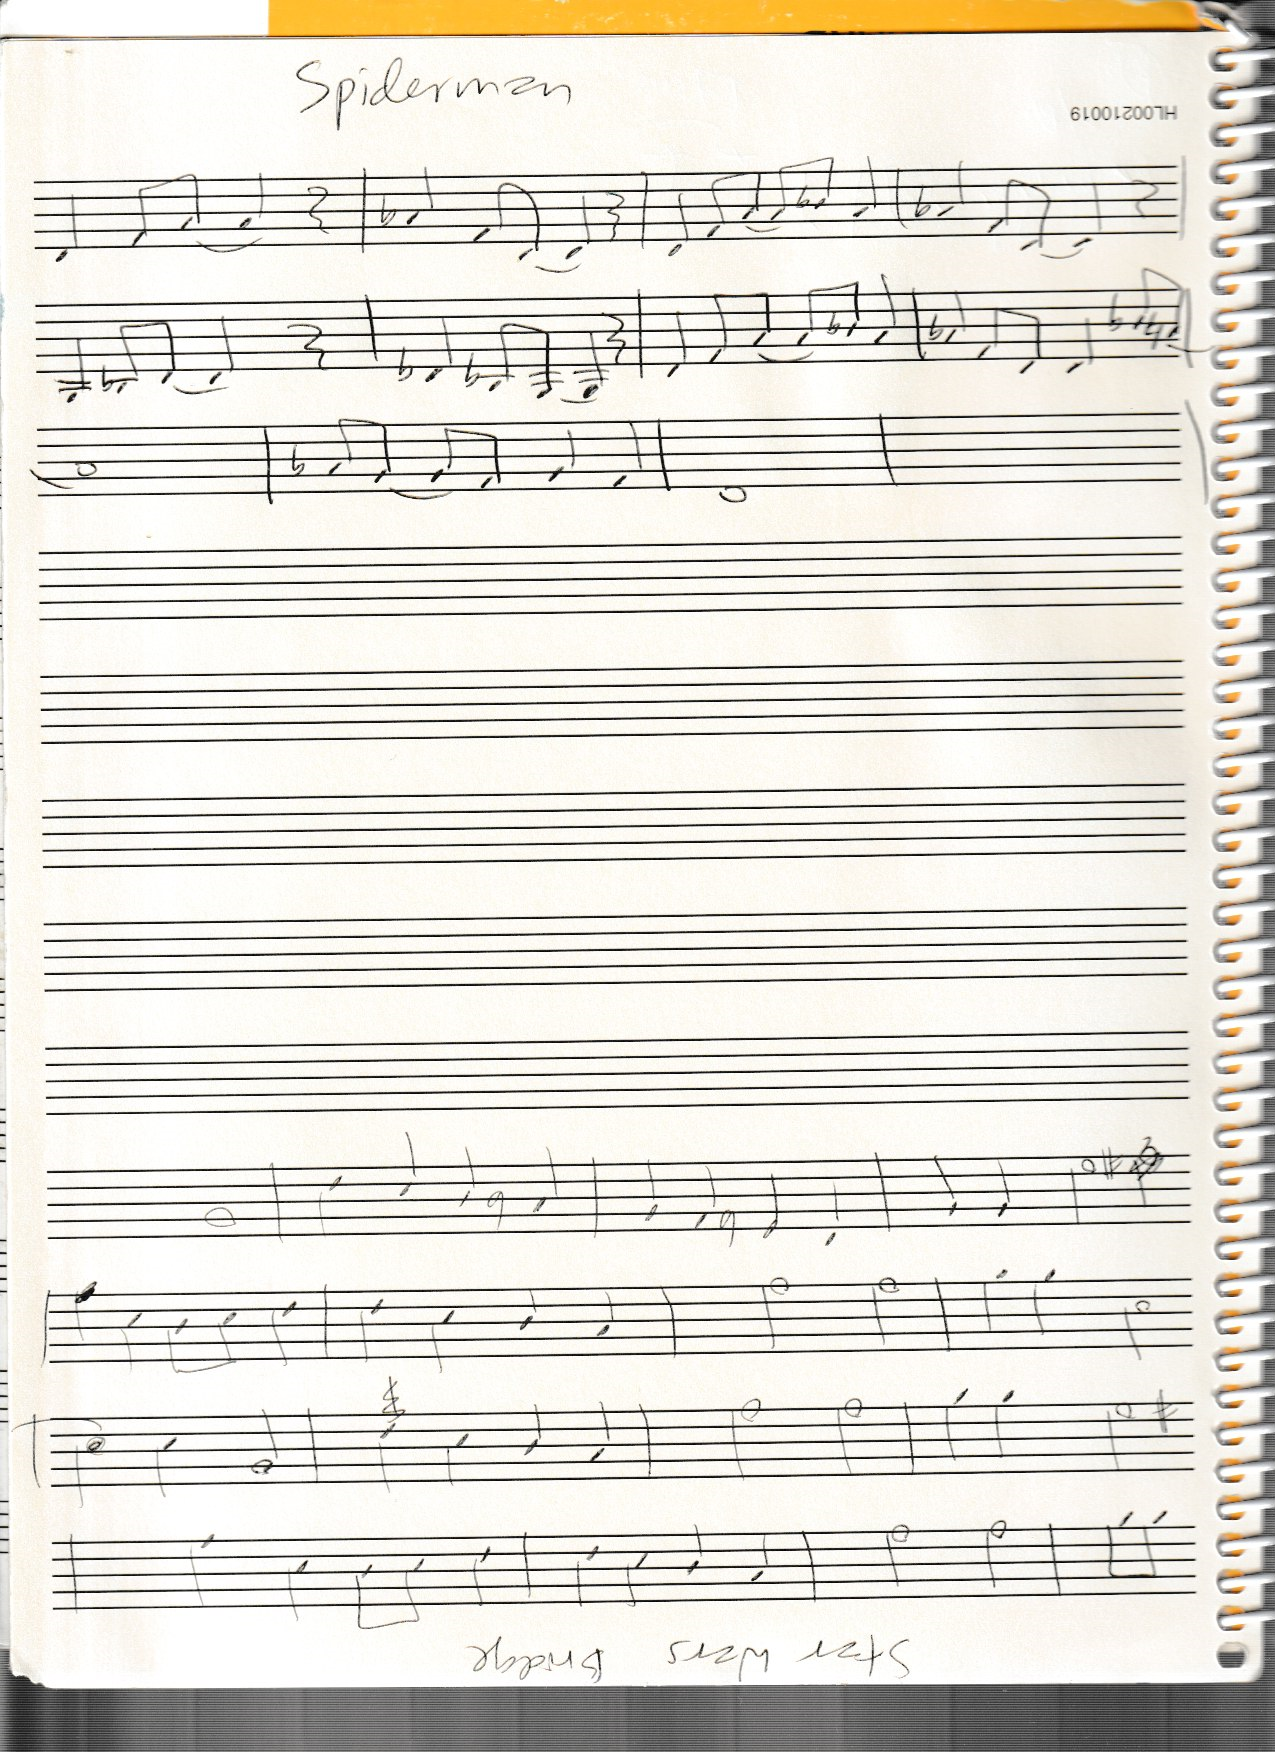 Spiderman
HL00210019
Star Wars Bridge